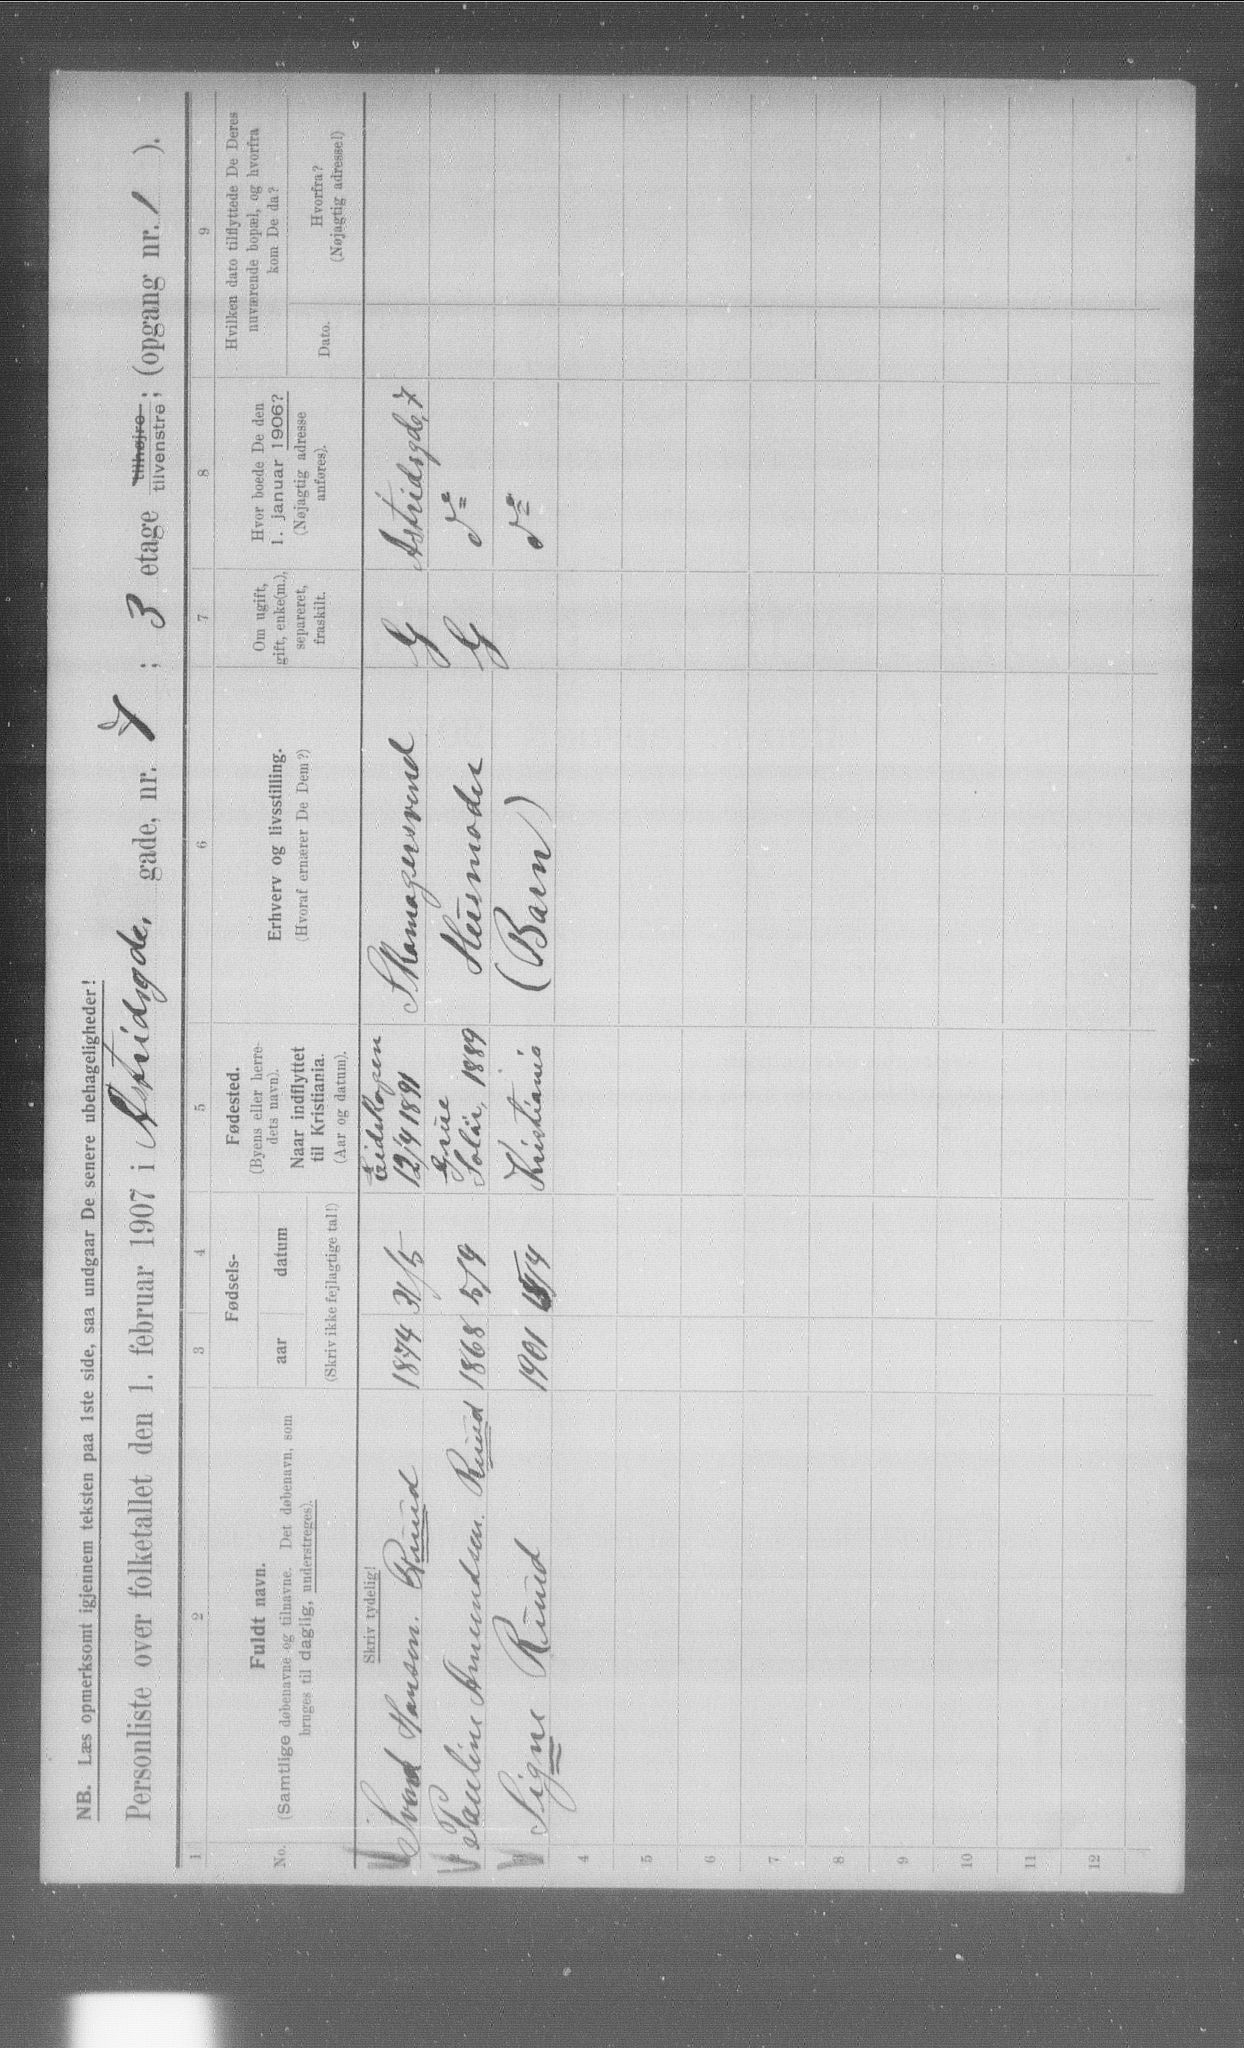 NB. Læs opmerksomt igjennem teksten paa 1ste side, saa undgaar De senere ubehageligheder!
Personliste over folketallet den 1. februar 1907 i Astridsgde. gade, nr. 7; 3 etage tilhøjre tilvenstre; (opgang nr. 1).
1 2 3 4 5 6 7 8 9
No.
Fuldt navn.
(Samtlige døbenavne og tilnavne. Det døbenavn, som
bruges til daglig, understreges).
Fødsels-
aar datum
(Skriv ikke fejlagtige tal!)
Fødested.
(Byens eller herre-
dets navn).
Naar indflyttet
til Kristiania.
(Aar og datum).
Erhverv og livsstilling.
(Hvoraf ernærer De Dem?)
Om ugift,
gift, enke(m.),
separeret,
fraskilt.
Hvor boede De den
1. januar 1906?
(Nøjagtig adresse
anføres).
Hvilken dato tilflyttede De Deres
nuværende bopæl, og hvorfra
kom De da?
Dato.
Hvorfra?
(Nøjagtig adresse!)
Skriv tydelig!
Svend Hansen. Ruud 1874 31/5 Eidskogen 12/4 1891 Skomagersvend G Astridsgde 7
Pauline Amundsen. Ruud 1868 5/9 Grue Solør, 1889 Husmoder G do
3 Signe Ruud 1901 /4 Kristiania (Barn) do
4
5
6
7
8
9
10
11
12